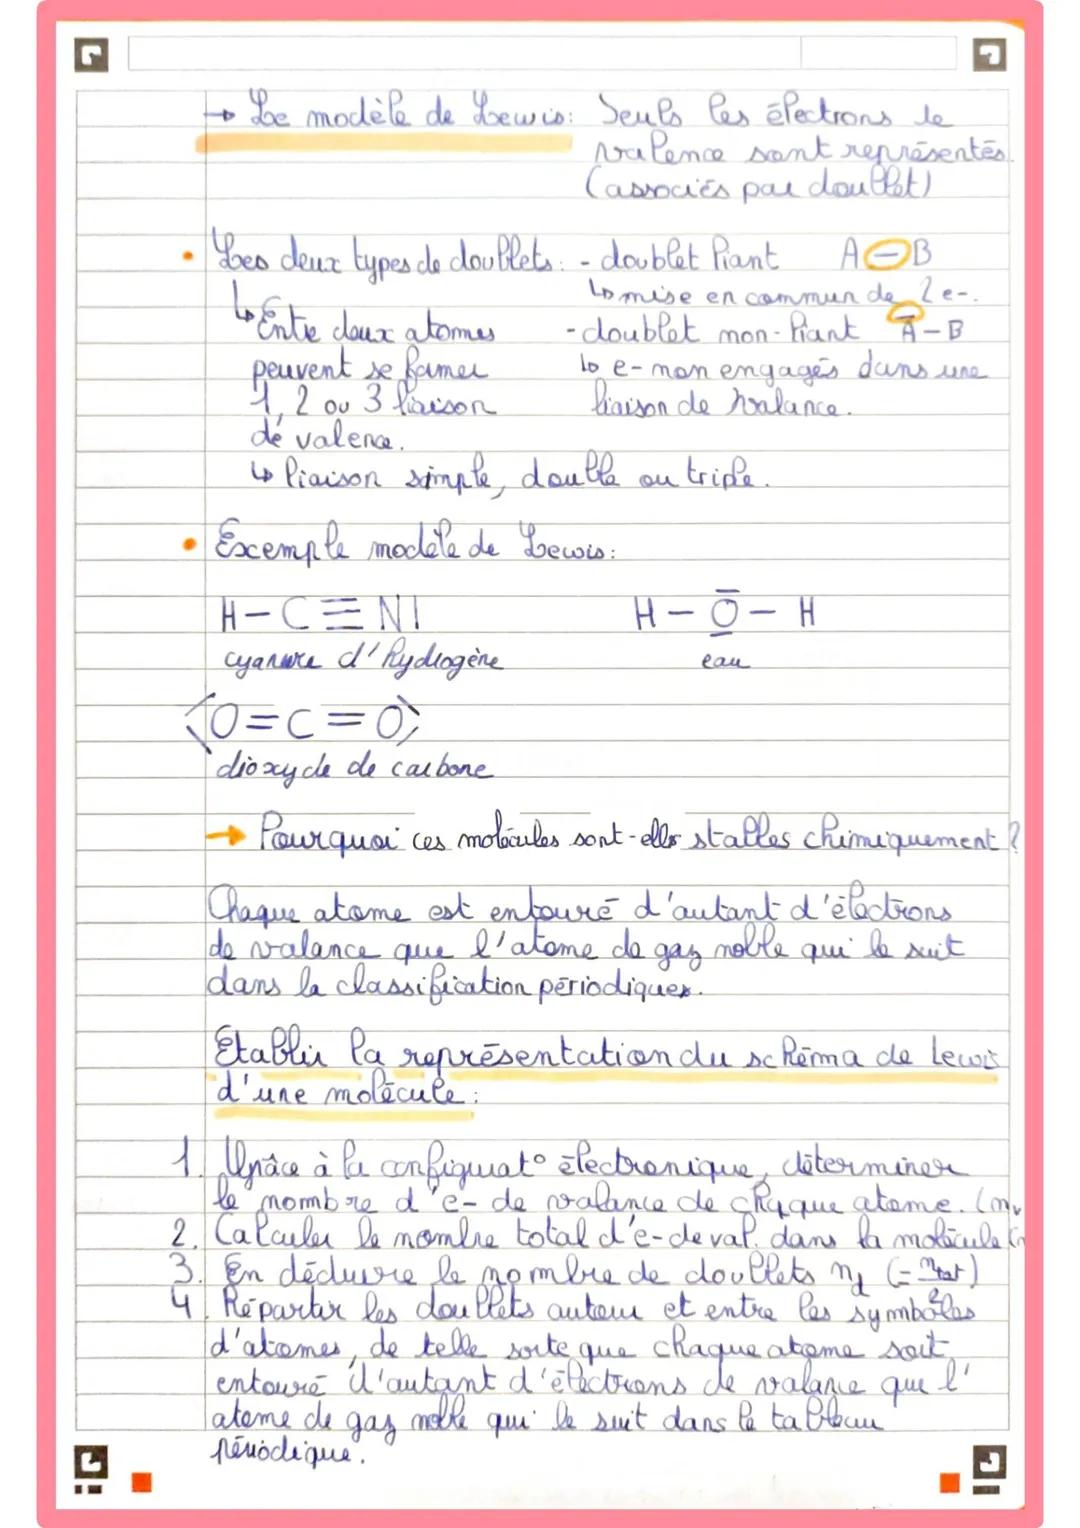 → Le modèle de Lewis: Seuls les électrons de
valence sont représentés.
(associés par doublet)
• Les deux types de doublets: - doublet liant A - B
↳ mise en commun de 2 e-.
↳ Entre deux atomes
peuvent se former
1, 2 ou 3 liaison
de valence.
↳ liaison simple, double ou triple.
- doublet non-liant A̅ - B
↳ e- non engagés dans une
liaison de valance.
• Exemple modèle de Lewis:
H - C ≡ N| H - O̲̅ - H
cyanure d'hydrogène eau
⟨O = C = O⟩
dioxyde de carbone
→ Pourquoi ces molécules sont-elles stables chimiquement ?
Chaque atome est entouré d'autant d'électrons
de valance que l'atome de gaz noble qui le suit
dans la classification périodiques.
Etablir la représentation du schéma de Lewis
d'une molécule:
1. Grâce à la configurat° électronique, déterminer
le nombre d'e- de valance de chaque atome. (nv
2. Calculer le nombre total d'e- de val. dans la molécule (n
3. En déduire le nombre de doublets nd (= ntot/2)
4. Répartir les doublets autour et entre les symboles
d'atomes, de telle sorte que chaque atome soit
entouré d'autant d'électrons de valance que l'
atome de gaz noble qui le suit dans le tableau
périodique.